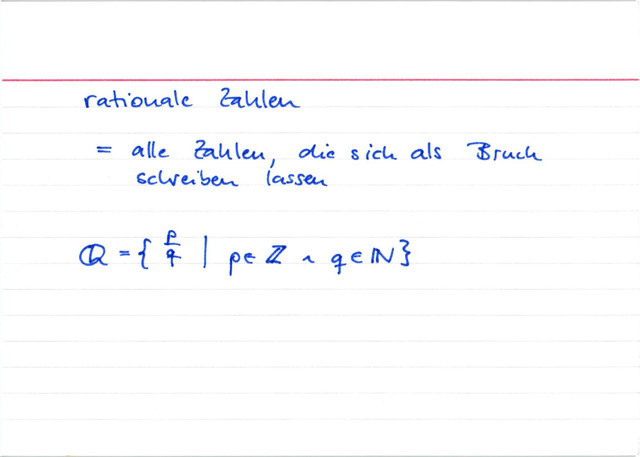 rationale Zahlen
= alle Zahlen, die sich als Bruch
schreiben lassen
ℚ = { p/q | p ∈ ℤ ∧ q ∈ ℕ }